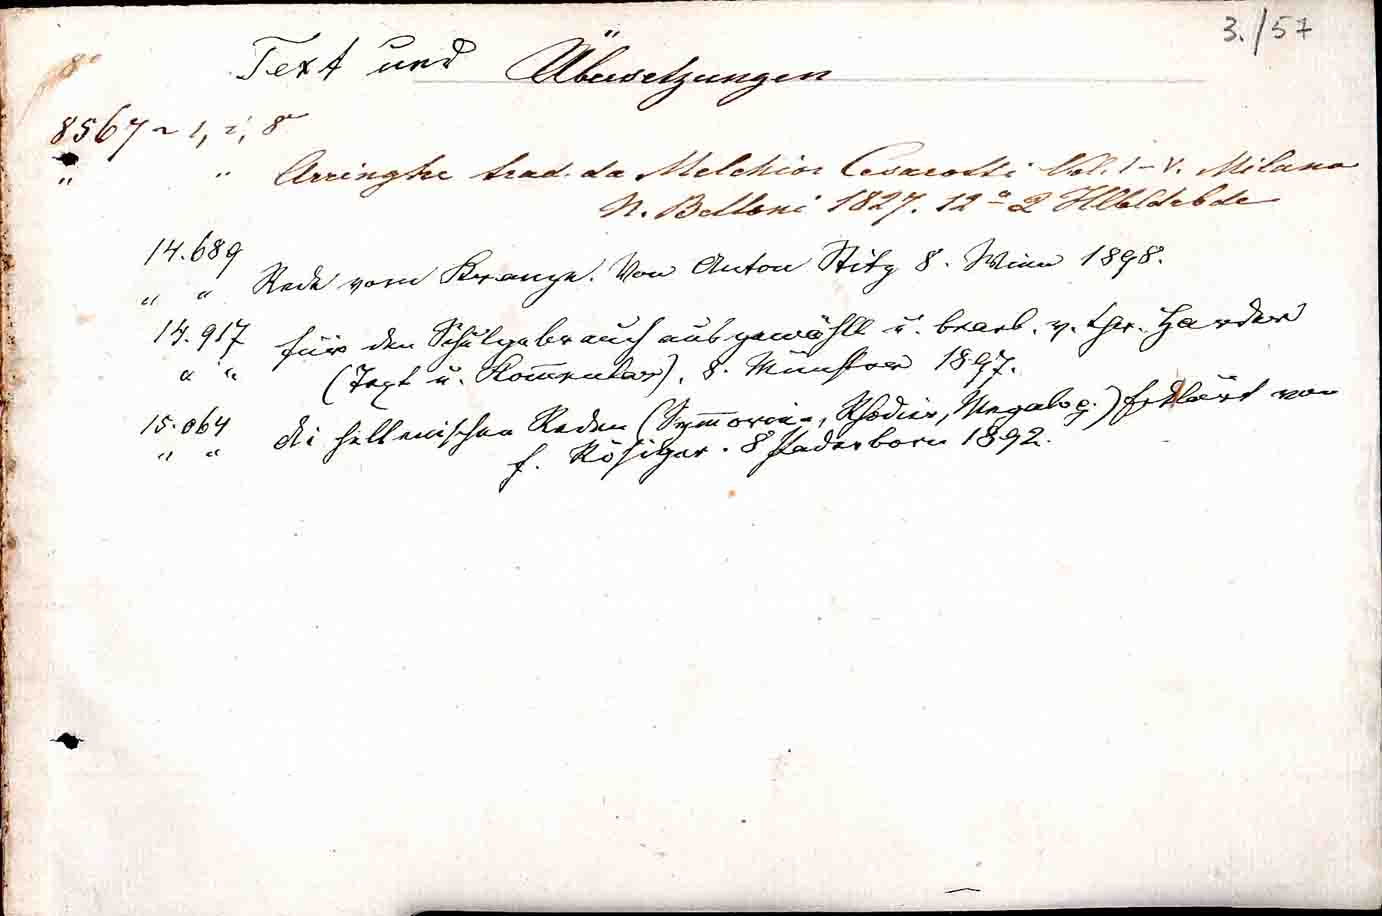 3./57
8°
Text und Übersetzungen
8567 ~ 1, 2, 8°
" " Arringhe trad. da Melchior Cesarotti Vol. I-V. Milano
N. Bettoni 1827. 12° 2 Hlbldrbde
14.689
" " Rede vom Kranze. Von Anton Stitz 8. Wien 1898.
14.917 für den Schulgebrauch ausgewählt u. bearb. v. Chr. Harder
" " (Text u. Kom̅entar). 8. Münster 1897.
15.064 die hellenischen Reden (Sym̅orien, Rhodier, Megalop.) erklärt von
" " F. Rösiger. 8 Paderborn 1892.